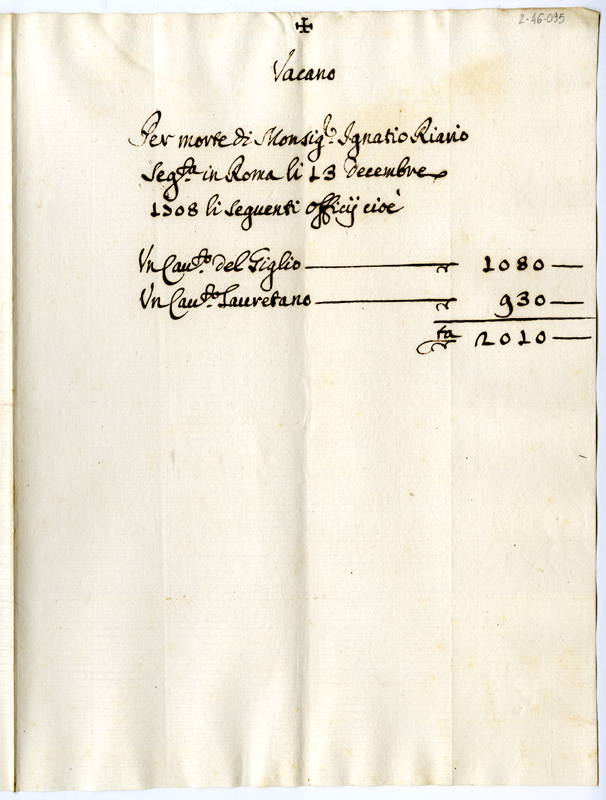 2-46-095
✠
Vacano
Per morte di Monsigr. Ignatio Riario
Segta in Roma li 13 Decembre
1708 li seguenti officij cioè
Un Cauto. del Giglio — 1080 —
Un Cauto. Lauretano — 930 —
2010 —